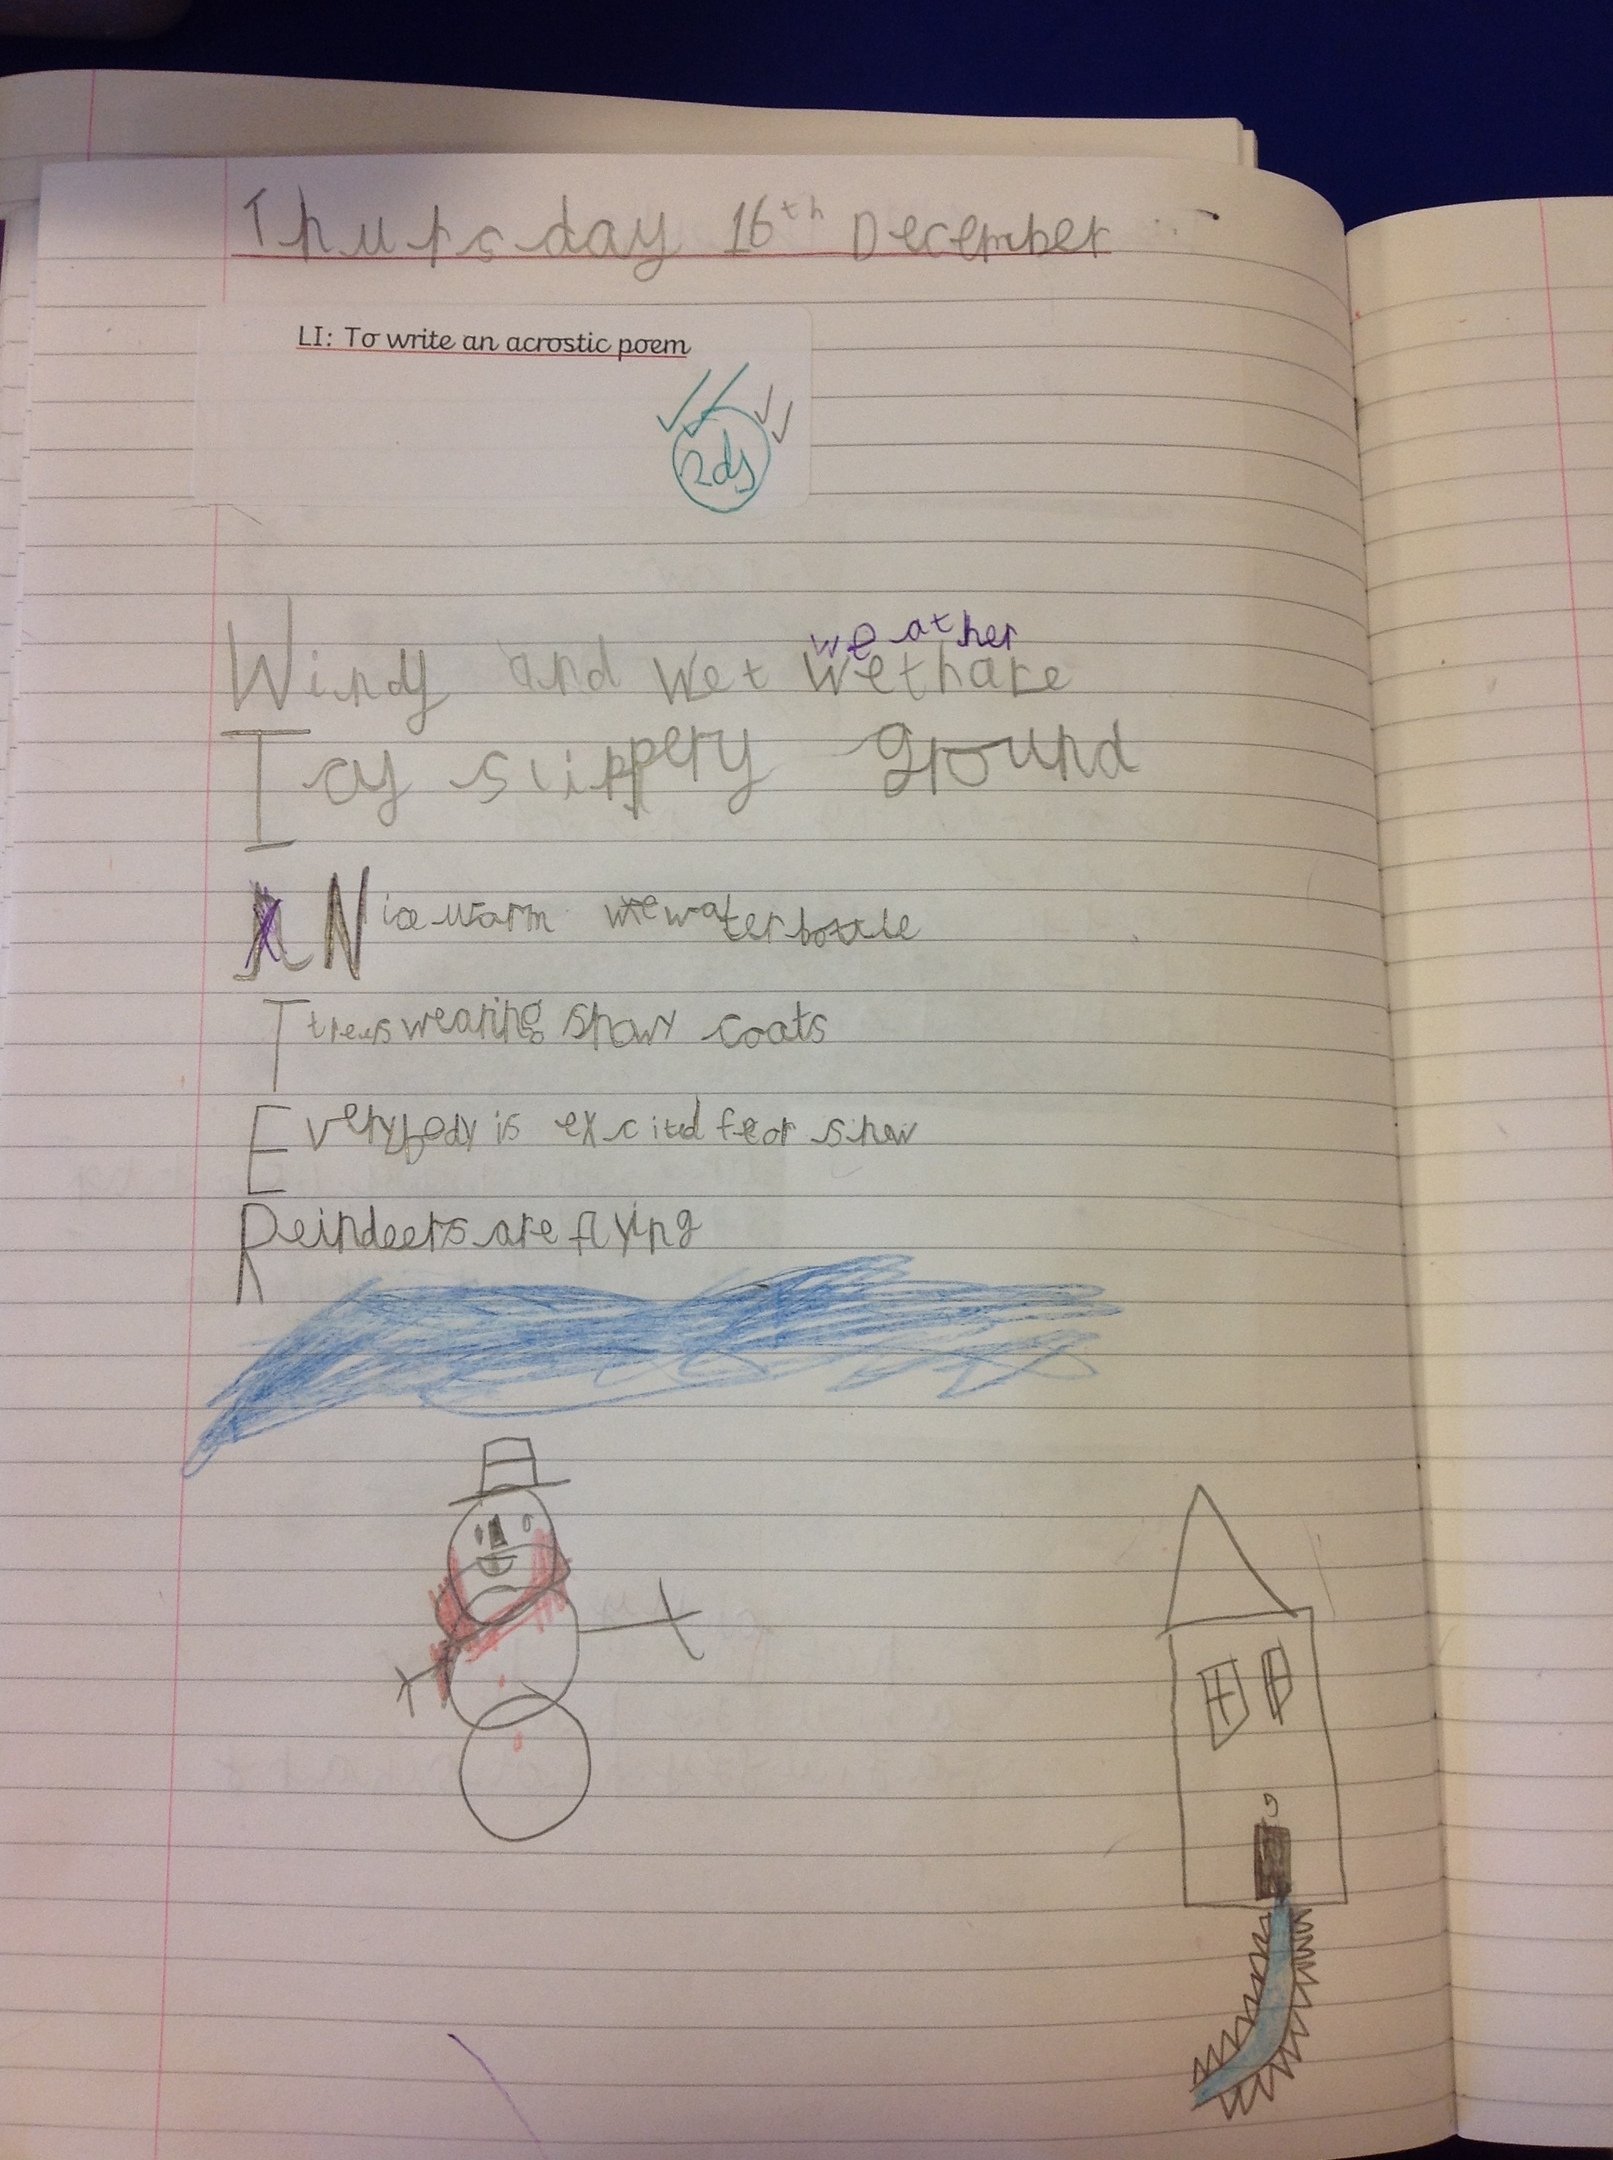 Thursday 16th December
LI: To write an acrostic poem
2ds
weather
Windy and wet wethare
Icy slippery ground
Nice warm water bottle
Ttrees wearing snow coats
Everybody is excited for snow
Reindeers are flying